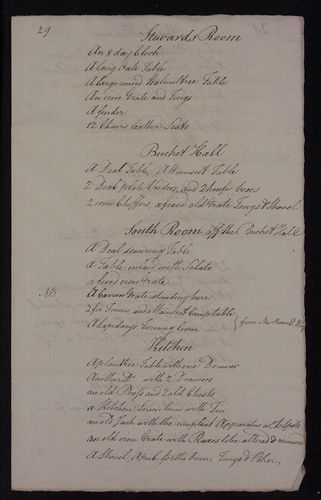 29
Stewards Room
An 8 day Clock
A Long Oak Table
A Large round Walnuttree Table
An iron Grate and Tongs
A fender
12 Chairs leather Seats
Bucket Hall
A Deal Table, A Table
2 Deal plate and 2 knife boxes
2 iron a fixed old Grate Tongs & Shovel
South Room off the Bucket Hall
A Deal scouring Table
A Table inlaid with Solate
a fixed iron Grate
NB
A barron Grate standing here
2 fir Forms and a Wainscot Camp table
A Lapidarys Turning loom
from New Room
Kitchen
A plantree Table with one Drawer
Another Do. with 2 Drawers
an old Press and 2 old Chests
a Kitchen lined with Tin
an old Jack with the compleat Apparatus wt. 2 Spits
an old iron Grate with Raxes to be altered & removed
A Shovel, for the oven, Tongs & Poker